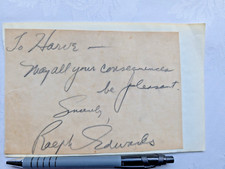 To Harve —
May all your consequences
be pleasant.
Sincerely,
Ralph Edwards